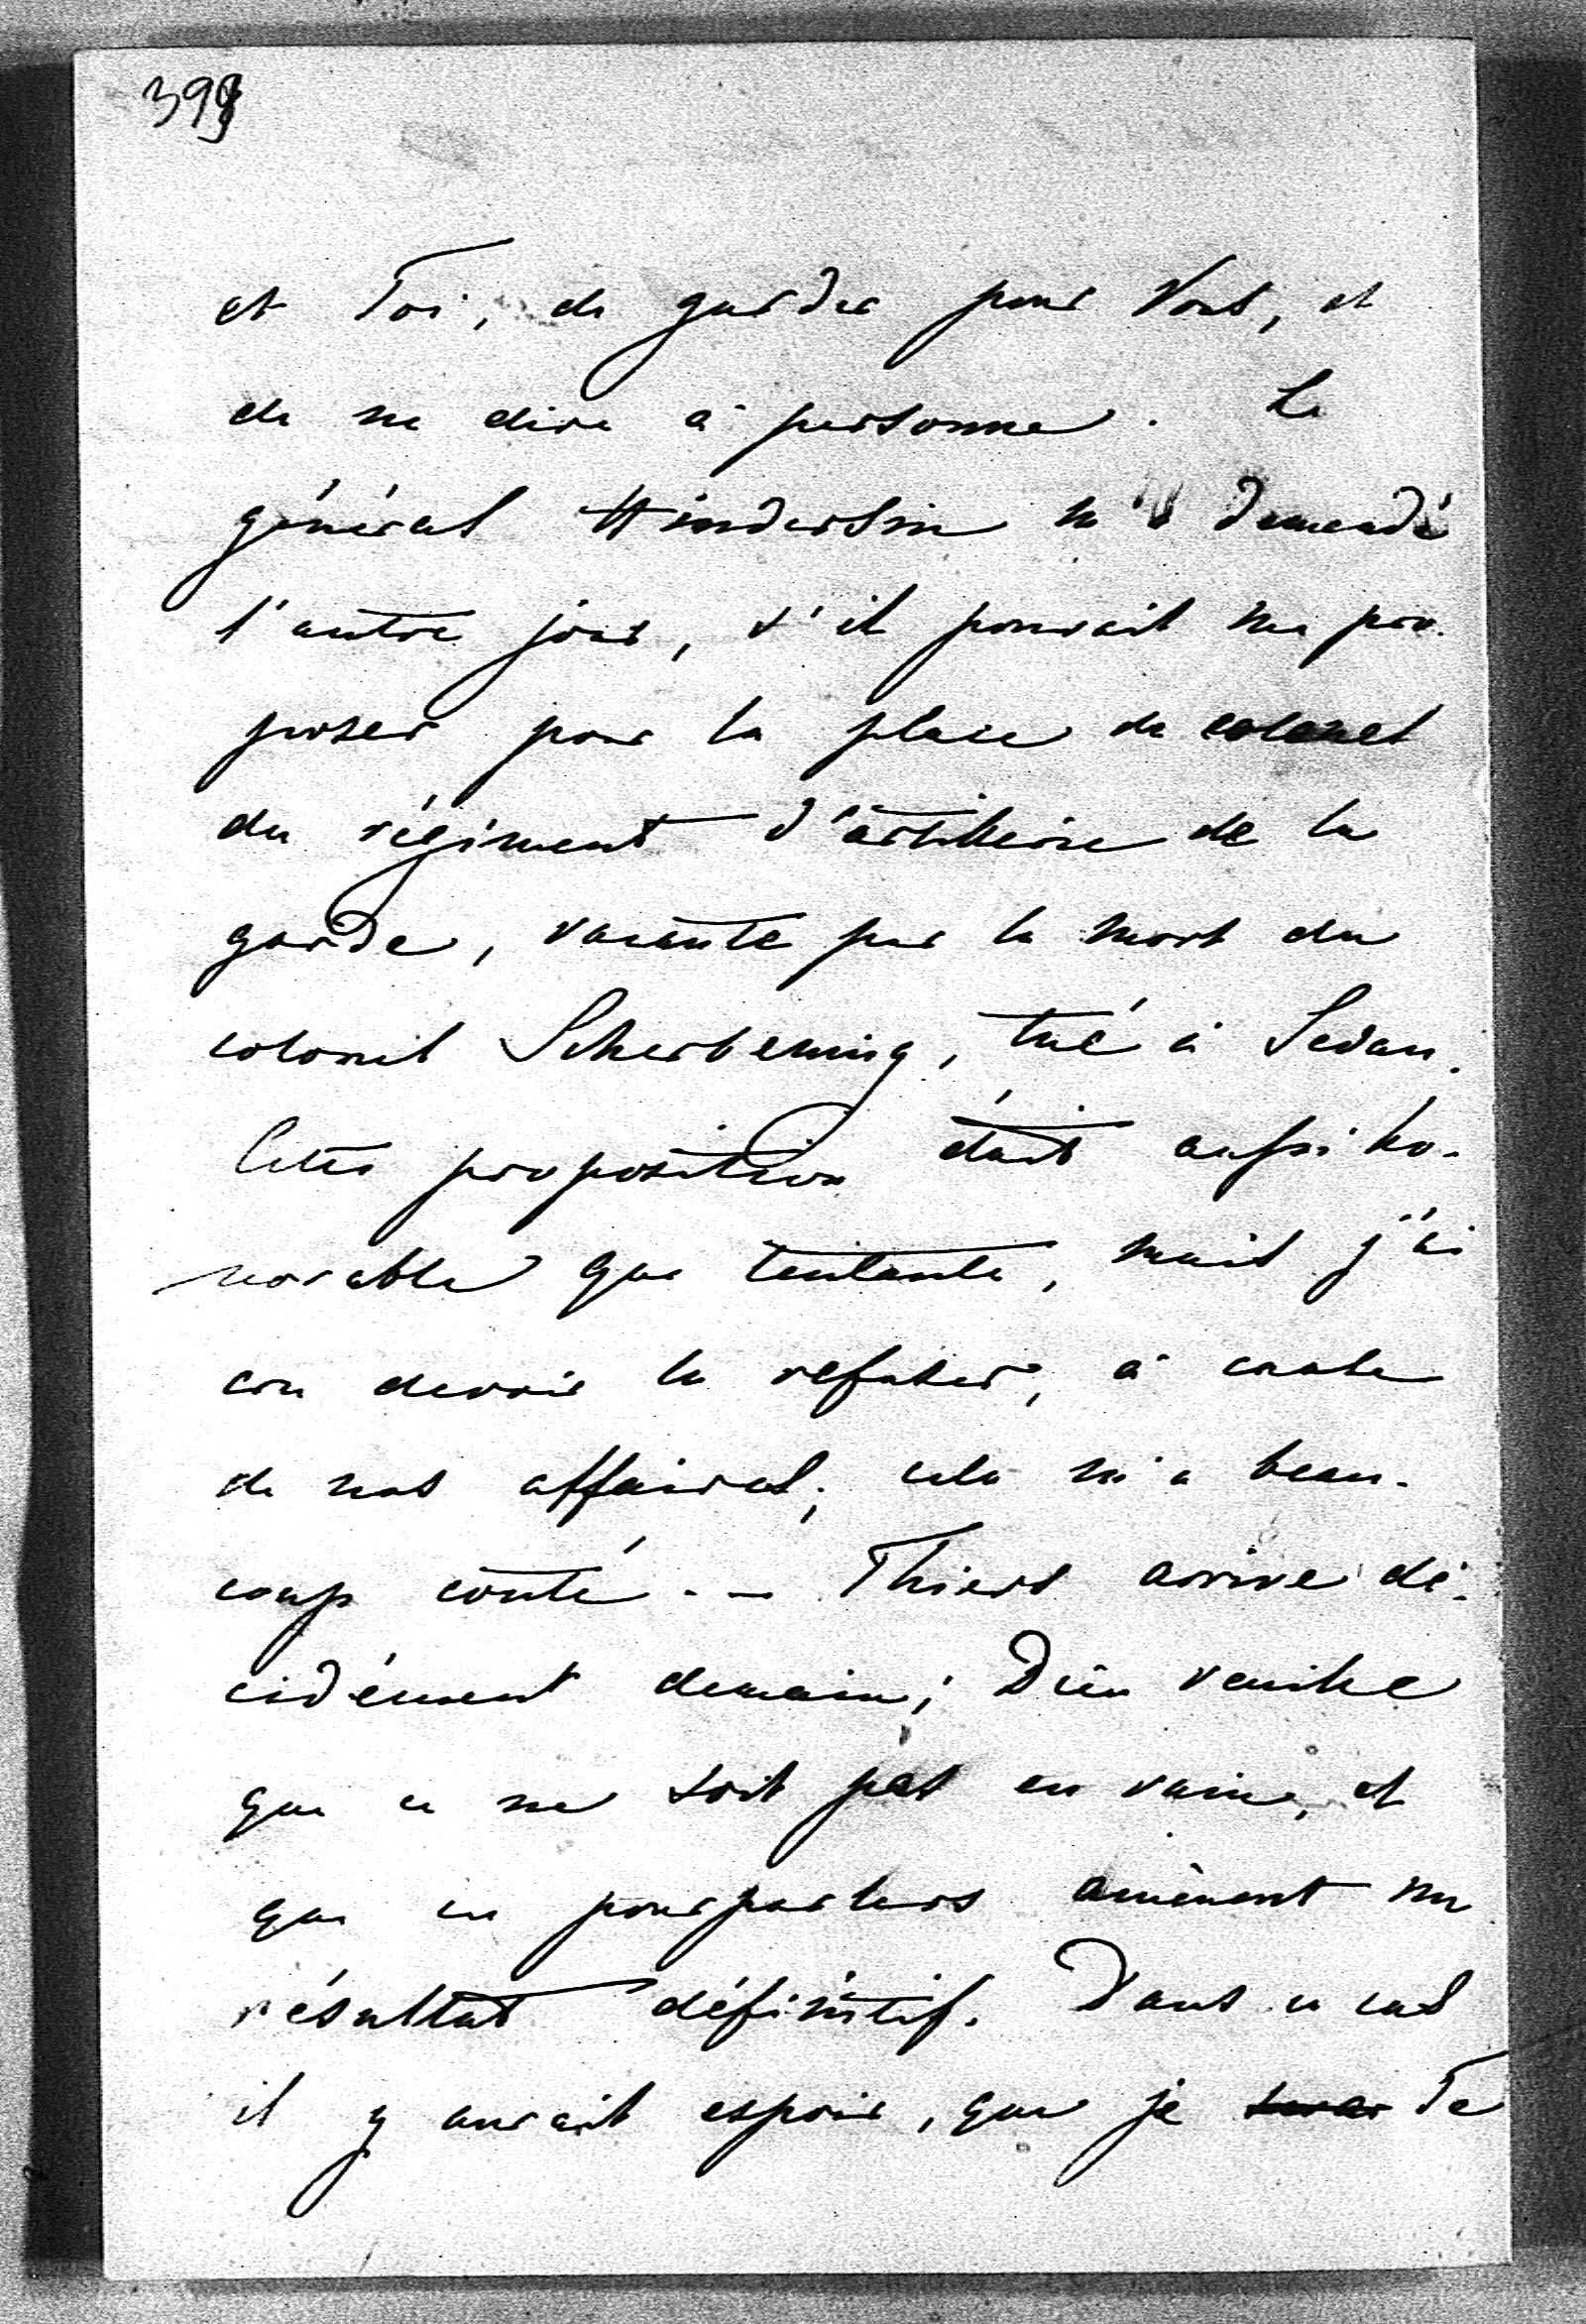 399
et Toi, de garder pour Vous, et
de ne dire à personne. Le
général Hindersin m'a demandé
l'autre jour, s'il pouvait me pro-
poser pour la place de colonel
du régiment d'artillerie de la
garde, vacante par la mort du
colonel Scherbening, tué à Sedan.
Cette proposition était aussi ho-
norable que tentante, mais j'ai
cru devoir la refuser, à cause
de nos affaires; cela m'a beau-
coup coûté. — Thiers arrive dé-
cidément demain; Dieu veuille
que ce ne soit pas en vain, et
que ces pourparlers amènent un
résultat définitif. Dans ce cas
il y aurait espoir, que je Te